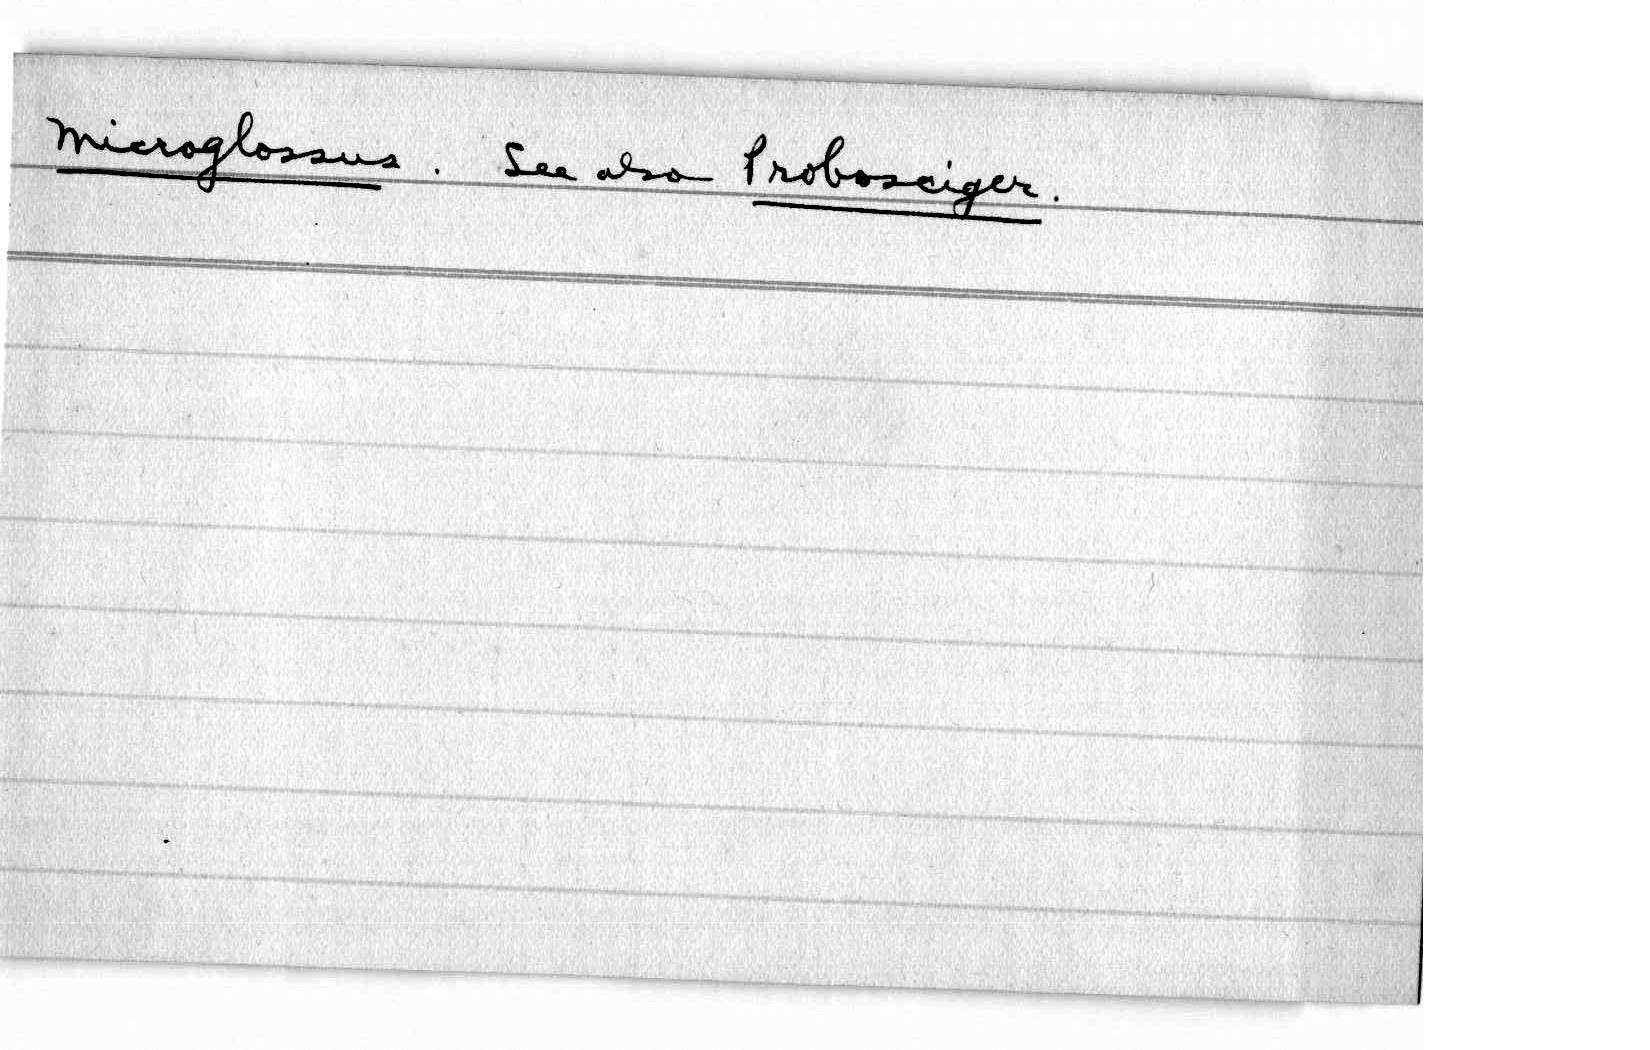 Microglossus. See also Probosciger.